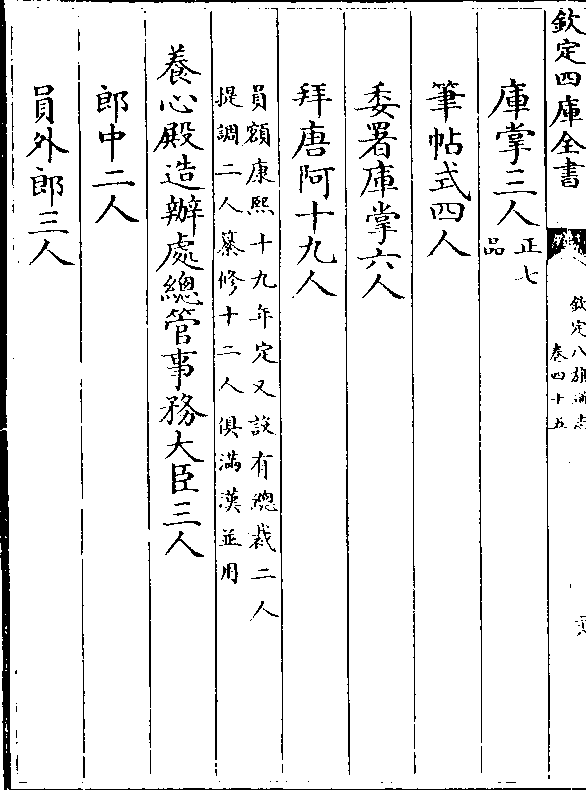 欽定四庫全書
欽定八旗通志
卷四十五
庫掌三人正七品
筆帖式四人
委署庫掌六人
拜唐阿十九人
員額康熙十九年定又設有總裁二人
提調二人纂修十二人俱滿漢並用
養心殿造辦處總管事務大臣三人
郎中二人
員外郎三人